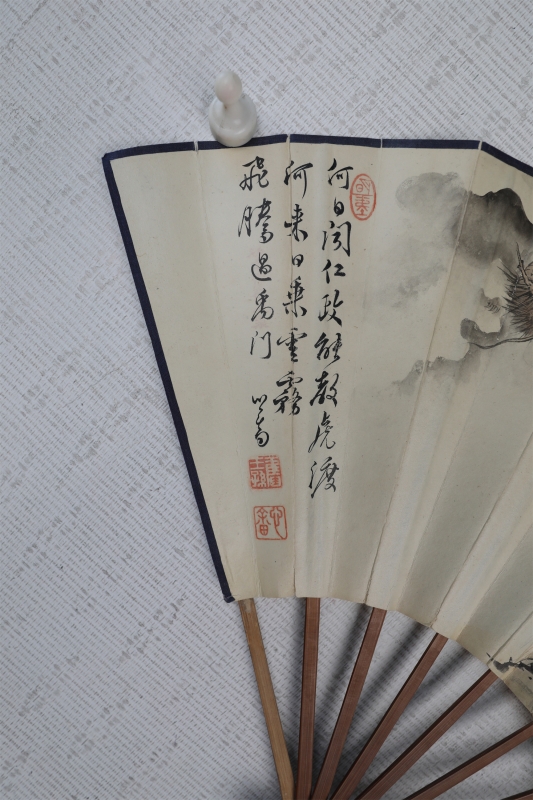 何日闻仁政能教虎渡
河来日乘云雾
飞腾过禹门
心畬